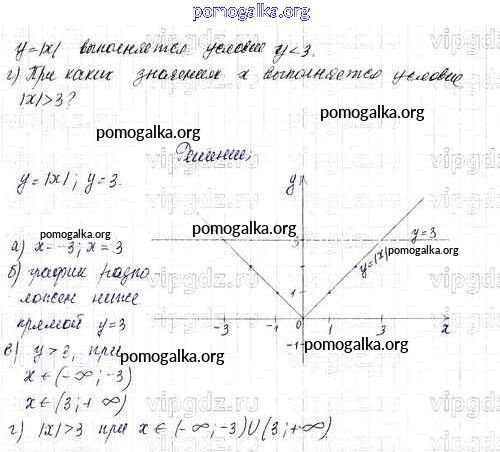 pomogalka.org
y=|x| выполняется условие y<3.
г) При каких значениях x выполняется условие
|x|>3?
pomogalka.org
pomogalka.org
Решение:
y=|x|; y=3.
y
pomogalka.org
3
y=3
pomogalka.org
y=|x|
1
-3
-1
0
1
3
x
-1
а) x=-3; x=3
pomogalka.org
б) график распо
ложен ниже
прямой y=3
в) y>3, при
pomogalka.org
x∈(-∞;-3)
x∈(3;+∞)
г) |x|>3 при x∈(-∞;-3)U(3;+∞).
pomogalka.org
vipgdz.ru